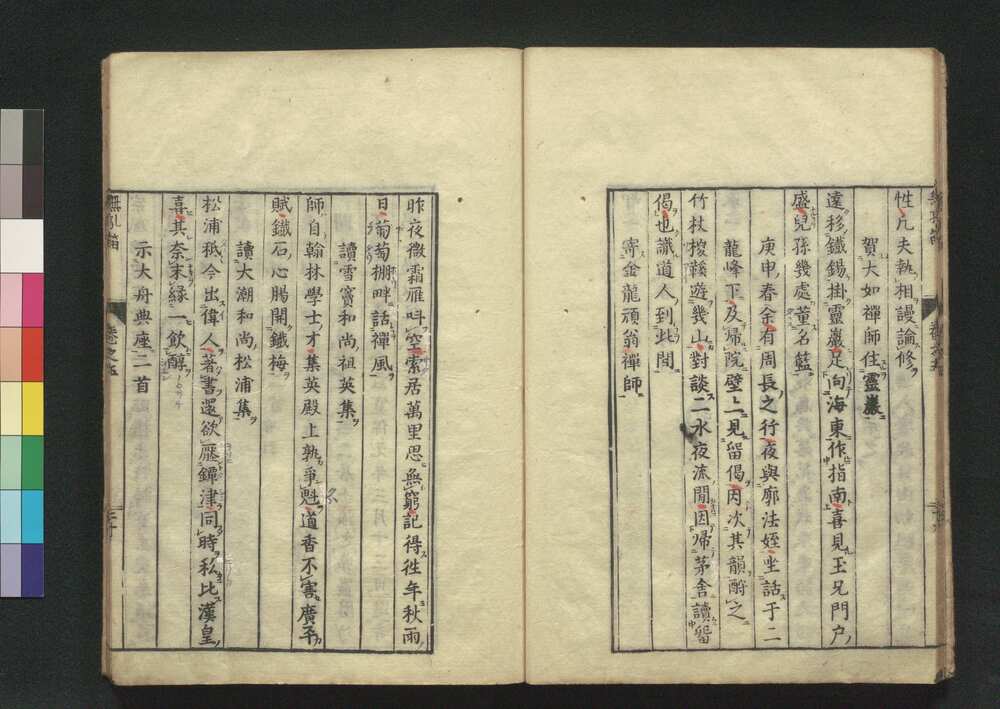 性凡夫執相謾論修
賀大如禪師住靈巖
遠移鐵錫掛靈巖足向海東作指南喜見玉兄門戶
盛兒孫幾處董名藍
庚申春余有周長之行夜與廓法姪坐話于二
龍峰下及帰院壁上見留偈因次其韻酧之
竹杖椶鞵遊幾山對談二水夜流閒因帰茅舍讀留
偈也識道人到此間
寄金龍頑翁禪師
昨夜微霜雁呌空索居萬里思無窮記得徃年秋雨
日葡萄棚畔話禪風
讀雪竇和尚祖英集
師自翰林學士才集英殿上孰爭魁道香不害廣平
賦鐵石心腸開鐵梅
讀大潮和尚松浦集
松浦秖今出偉人著書還欲壓鐔津同時私比漢皇
喜其奈末縁一飲醇
示大舟典座二首